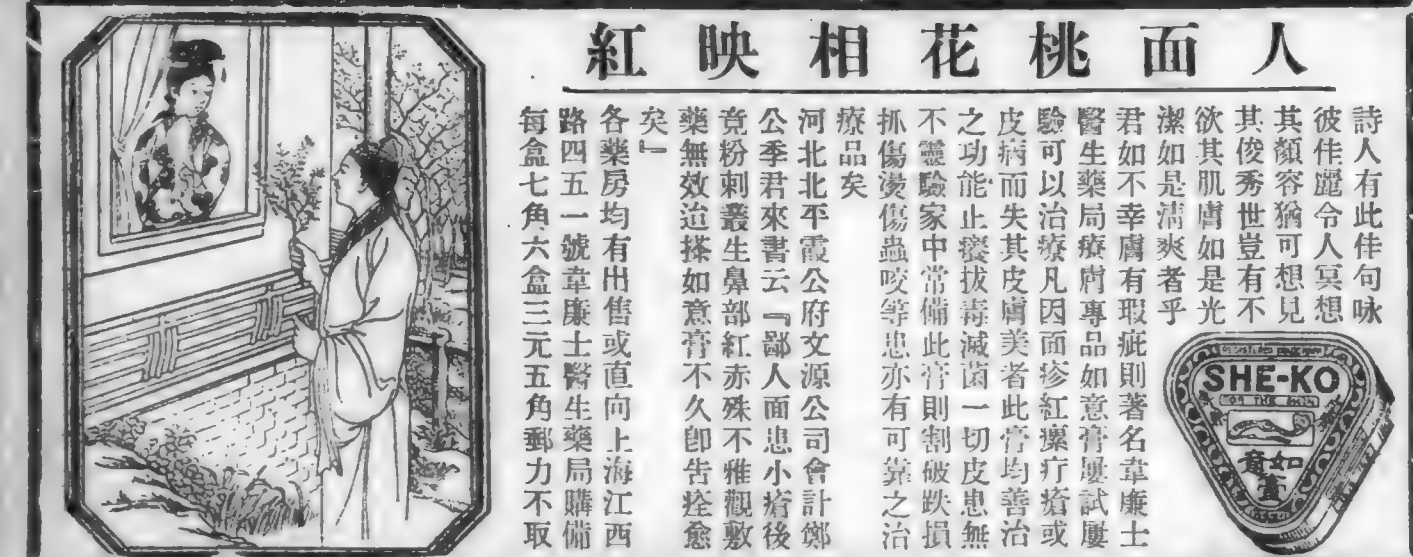 人面桃花相映紅
詩人有此佳句咏
彼佳麗令人冥想
其顏容猶可想見
其俊秀世豈有不
欲其肌膚如是光
潔如是清爽者乎
君如不幸膚有瑕疵則著名韋廉士
醫生藥局療膚專品如意膏屢試屢
驗可以治療凡因面疹紅瘰疔瘡或
皮病而失其皮膚美者此膏均善治
之功能止癢拔毒滅菌一切皮患無
不靈驗家中常備此膏則割破跌損
抓傷燙傷蟲咬等患亦有可靠之治
療品矣
河北北平霞公府文源公司會計鄭
公季君來書云『鄙人面患小瘡後
竟粉刺叢生鼻部紅赤殊不雅觀敷
藥無效迨搽如意膏不久卽告痊愈
矣』
各藥房均有出售或直向上海江西
路四五一號韋廉士醫生藥局購備
每盒七角六盒三元五角郵力不取
SHE-KO
FOR THE SKIN
如意膏